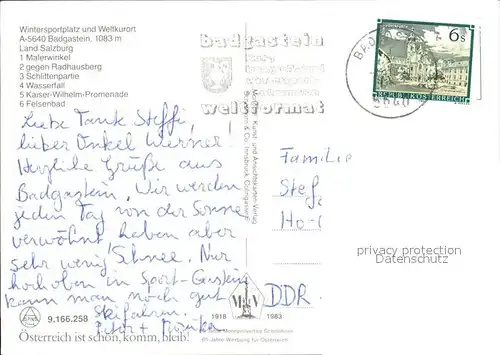 Wintersportplatz und Weltkurort
A-5640 Badgastein, 1083 m
Land Salzburg
1 Malerwinkel
2 gegen Radhausberg
3 Schlittenpartie
4 Wasserfall
5 Kaiser-Wilhelm-Promenade
6 Felsenbad
badgastein
weltformat
6 S
REPUBLIK ÖSTERREICH
5640
Liebe Tante Steffi,
lieber Onkel Werner!
Herzliche Grüße aus
Badgastein. Wir werden
jeden Tag von der Sonne
verwöhnt, haben aber
sehr wenig Schnee. Nur
hoch oben in Sport-Gastein
kann man noch gut
Skifahren.
Familie
Stef
Ho-
DDR
privacy protection
Datenschutz
9.166.258
1918
1983
65 Jahre Werbung für Österreich
Österreich ist schön, komm, bleib!